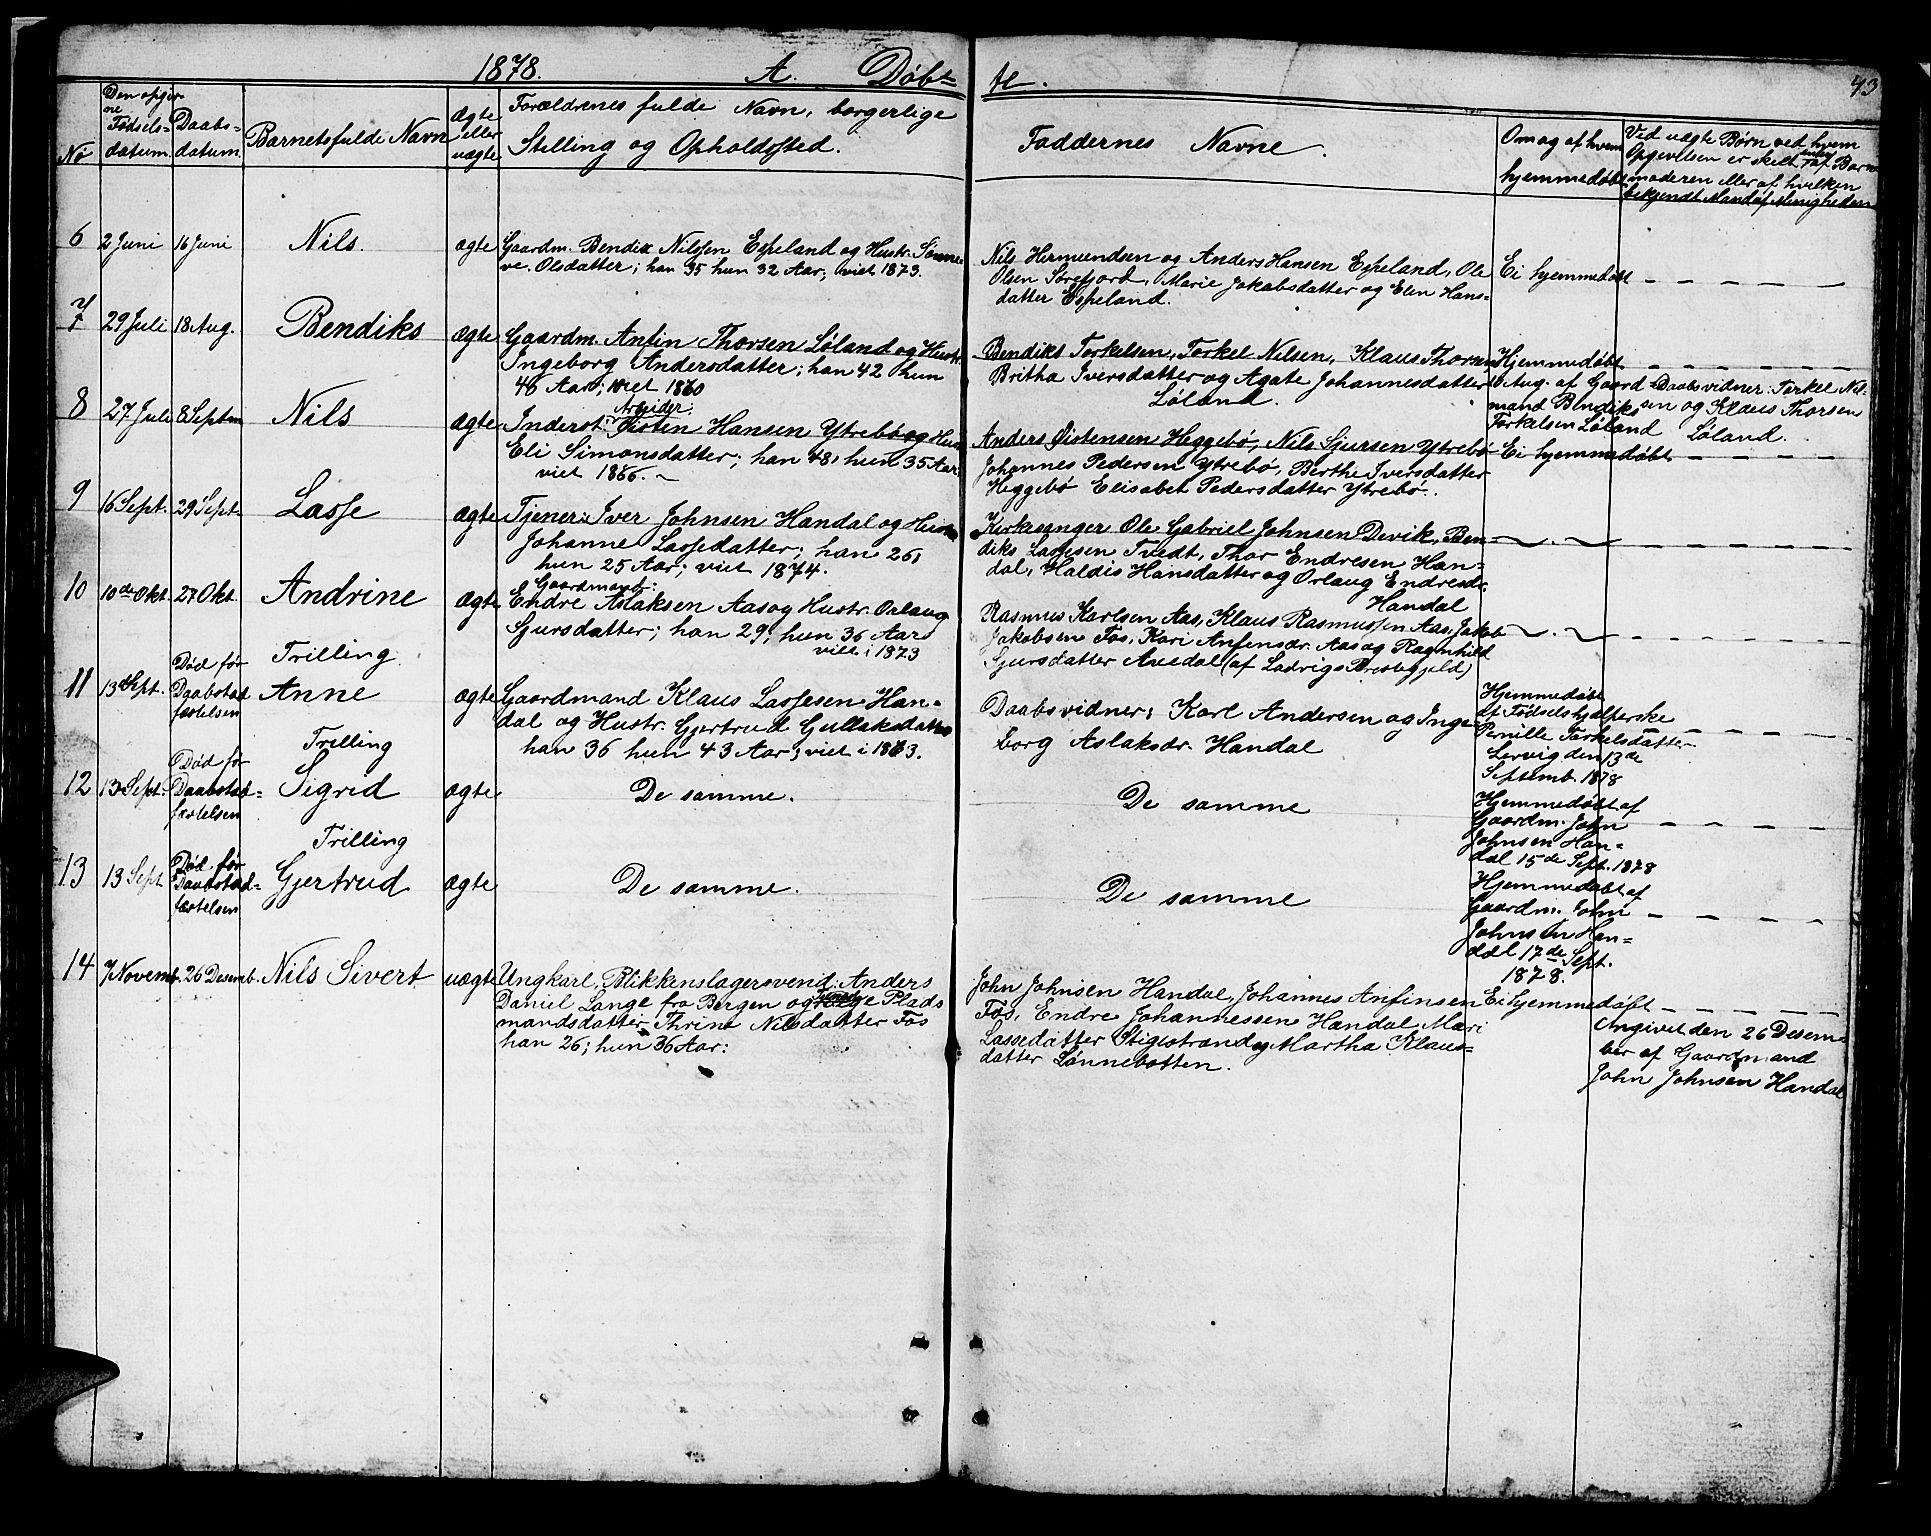 1878. A. Døbte. 43
No
Den opgivne Fødselsdatum
Daabsdatum
Barnets fulde Navn
ægte eller uægte
Forældrenes fulde Navn, borgerlige
Stilling og Opholdssted.
Faddernes Navne.
Om og af hvem
hjemmedøbt
Ved uægte Børn ved hvem
Opgivelsen er skeet enten af Barne
moderen eller af hvilken
bekjendt Mand af Menigheden
6 2 Juni 16 Juni Nils. ægte
Gaardm. Bendix Nilssen Espeland og Hustr. Sønne
ve. Olsdatter; han 35 hun 32 Aar; viet 1873.
Nils Hermundsen og Anders Hansen Espeland, Ole
Olsen Sørefjord, Marie Jakobsdatter og Elen Hans=
datter Espeland.
Ei hjemmedøbt
7 29 Juli 18 Aug. Bendiks ægte
Gaardm. Anfin Thorsen Løland og Hustr.
Ingeborg Andersdatter; han 42 hun
46 Aar; viet 1860
Bendiks Torkelsen, Torkel Nilsen, Klaus Thorsen
Britha Iversdatter og Agate Johannesdatter
Løland.
Hjemmedøbt
6 Aug. af Gaard
mand Bendiks
Torkelsen Løland
Daabsvidner: Torkel Nil-
sen og Klaus Thorsen
Løland.
8 27 Juli 8 Septem Nils ægte
Arbeider.
Inderst: Øisten Hansen Ytrebø og Hus
Eli Simonsdatter; han 48, hun 35 Aar
viet 1866. ~
Anders Øistensen Heggebø, Nils Sjursen Ytrebø
Johannes Pedersen Ytrebø, Berthe Iversdatter
Heggebø Elisabet Pedersdatter Ytrebø.
Ei hjemmedøbt
9 16 Sept. 29 Sept. Lasse ægte
Tjener: Iver Johnsen Handal og Hustr
Johanne Lassedatter; han 26,
hun 25 Aar; viet 1874.
Kirkesanger Ole Gabriel Johnsen Devik, Ben=
diks Lassesen Tvedt, Thor Endresen Han=
dal, Haldis Hansdatter og Orlaug Endresdr.
Handal
10 10de Okt. 27 Okt. Andrine ægte
Gaardmand:
Endre Aslaksen Aas og Hustr. Orlaug
Sjursdatter; han 29; hun 36 Aar
viet i 1873
Rasmus Karlsen Aas, Klaus Rasmussen Aas, Jakob
Jakobsen Fos, Kari Anfinsdr. Aas og Ragnhild
Sjursdatter Avedal (af Ladvigs Præstegjeld)
Trilling
11 13de Sept. Død før
Daabstad
fæstelsen
Anne ægte
Gaardmand Klaus Lassesen Han=
dal og Hustr. Gjertrud Gullaksdatter
han 36 hun 43 Aar; viet i 1863.
Daabsvidner: Karl Andersen og Inge=
borg Aslaksdr. Handal
Hjemmedøbt
af Fødselshjælperske
Pernille Torkelsdatter
Lervig den 13de
Septemb. 1878
Trilling
12 13 Sept. Død før
Daabstad=
fæstelsen
Sigrid ægte De samme. De samme
Hjemmedøbt af
Gaardm. John
Johnsen Han=
dal 15de Sept. 1878
Trilling
13 13 Sept Død før
Daabstad=
fæstelsen
Gjertrud ægte De samme. De samme
Hjemmedøbt af
Gaardm. John
Johnsen Han=
dal 17de Sept.
1878.
14 7 Novemb. 26 Desemb. Nils Sivert uægte
Ungkarl, Blikkenslagersvend: Anders
Daniel Lange fra Bergen og Pige Plads
mandsdatter Thrine Nilsdatter Fos
han 26; hun 36 Aar:
John Johnsen Handal, Johannes Anfinsen
Fos, Endre Johannessen Handal, Mari
Lassedatter Stigestrand og Martha Klaus=
datter Lønnebotten.
Ei hjemmedøbt
Angivet den 26 Desem=
ber af Gaardmand
John Johnsen Handal